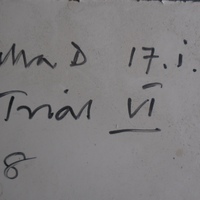 D 17.i.
Trial VI
8